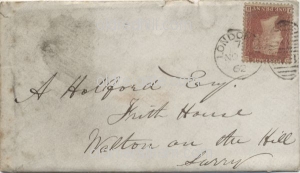 LONDON
62
A Holford Esq.
Frith House
Walton on the Hill
Surry